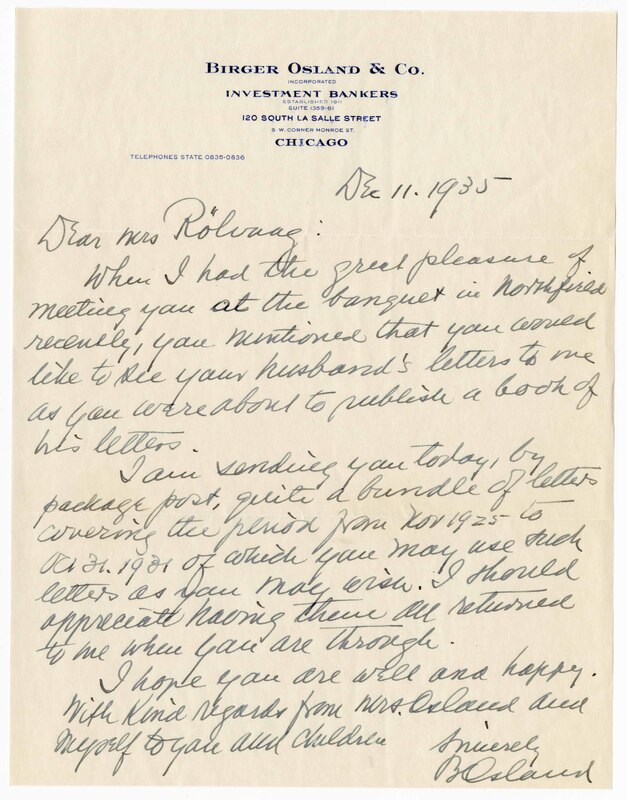 BIRGER OSLAND & CO.
INCORPORATED
INVESTMENT BANKERS
ESTABLISHED 1911
SUITE 1359-61
120 SOUTH LA SALLE STREET
S. W. CORNER MONROE ST.
CHICAGO
TELEPHONES STATE 0835-0836
Dec 11. 1935
Dear Mrs Rölvaag:
When I had the great pleasure of
meeting you at the banquet in Northfield
recently, you mentioned that you would
like to see your husband's letters to me
as you were about to publish a book of
his letters.
I am sending you today, by
package post, quite a bundle of letters
covering the period from Nov 1925 to
Oct 31. 1931 of which you may use such
letters as you may wish. I should
appreciate having them all returned
to me when you are through.
I hope you are well and happy.
With kind regards from Mrs. Osland and
myself to you and children
Sincerely
BOsland